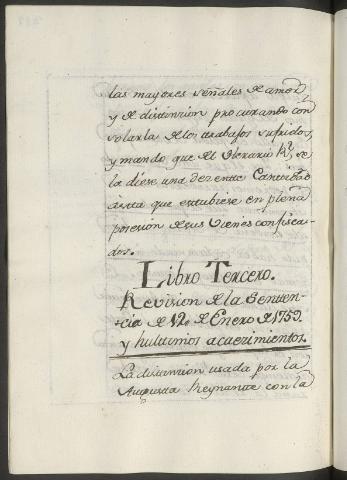 las mayores señales de amor,
y de distinzion procurando con
solarla de los trabajos sufridos,
y mando que del Herario Rl, se
la diese una dezente Cantidad
asta que estubiese en plena
posesion de sus Vienes confisca-
dos.
Libro Tercero.
Revision de la Senten-
cia de 12 de Enero de 1759
y hultimos acaezimientos.
La distinzion usada por la
Augusta Reynante con la